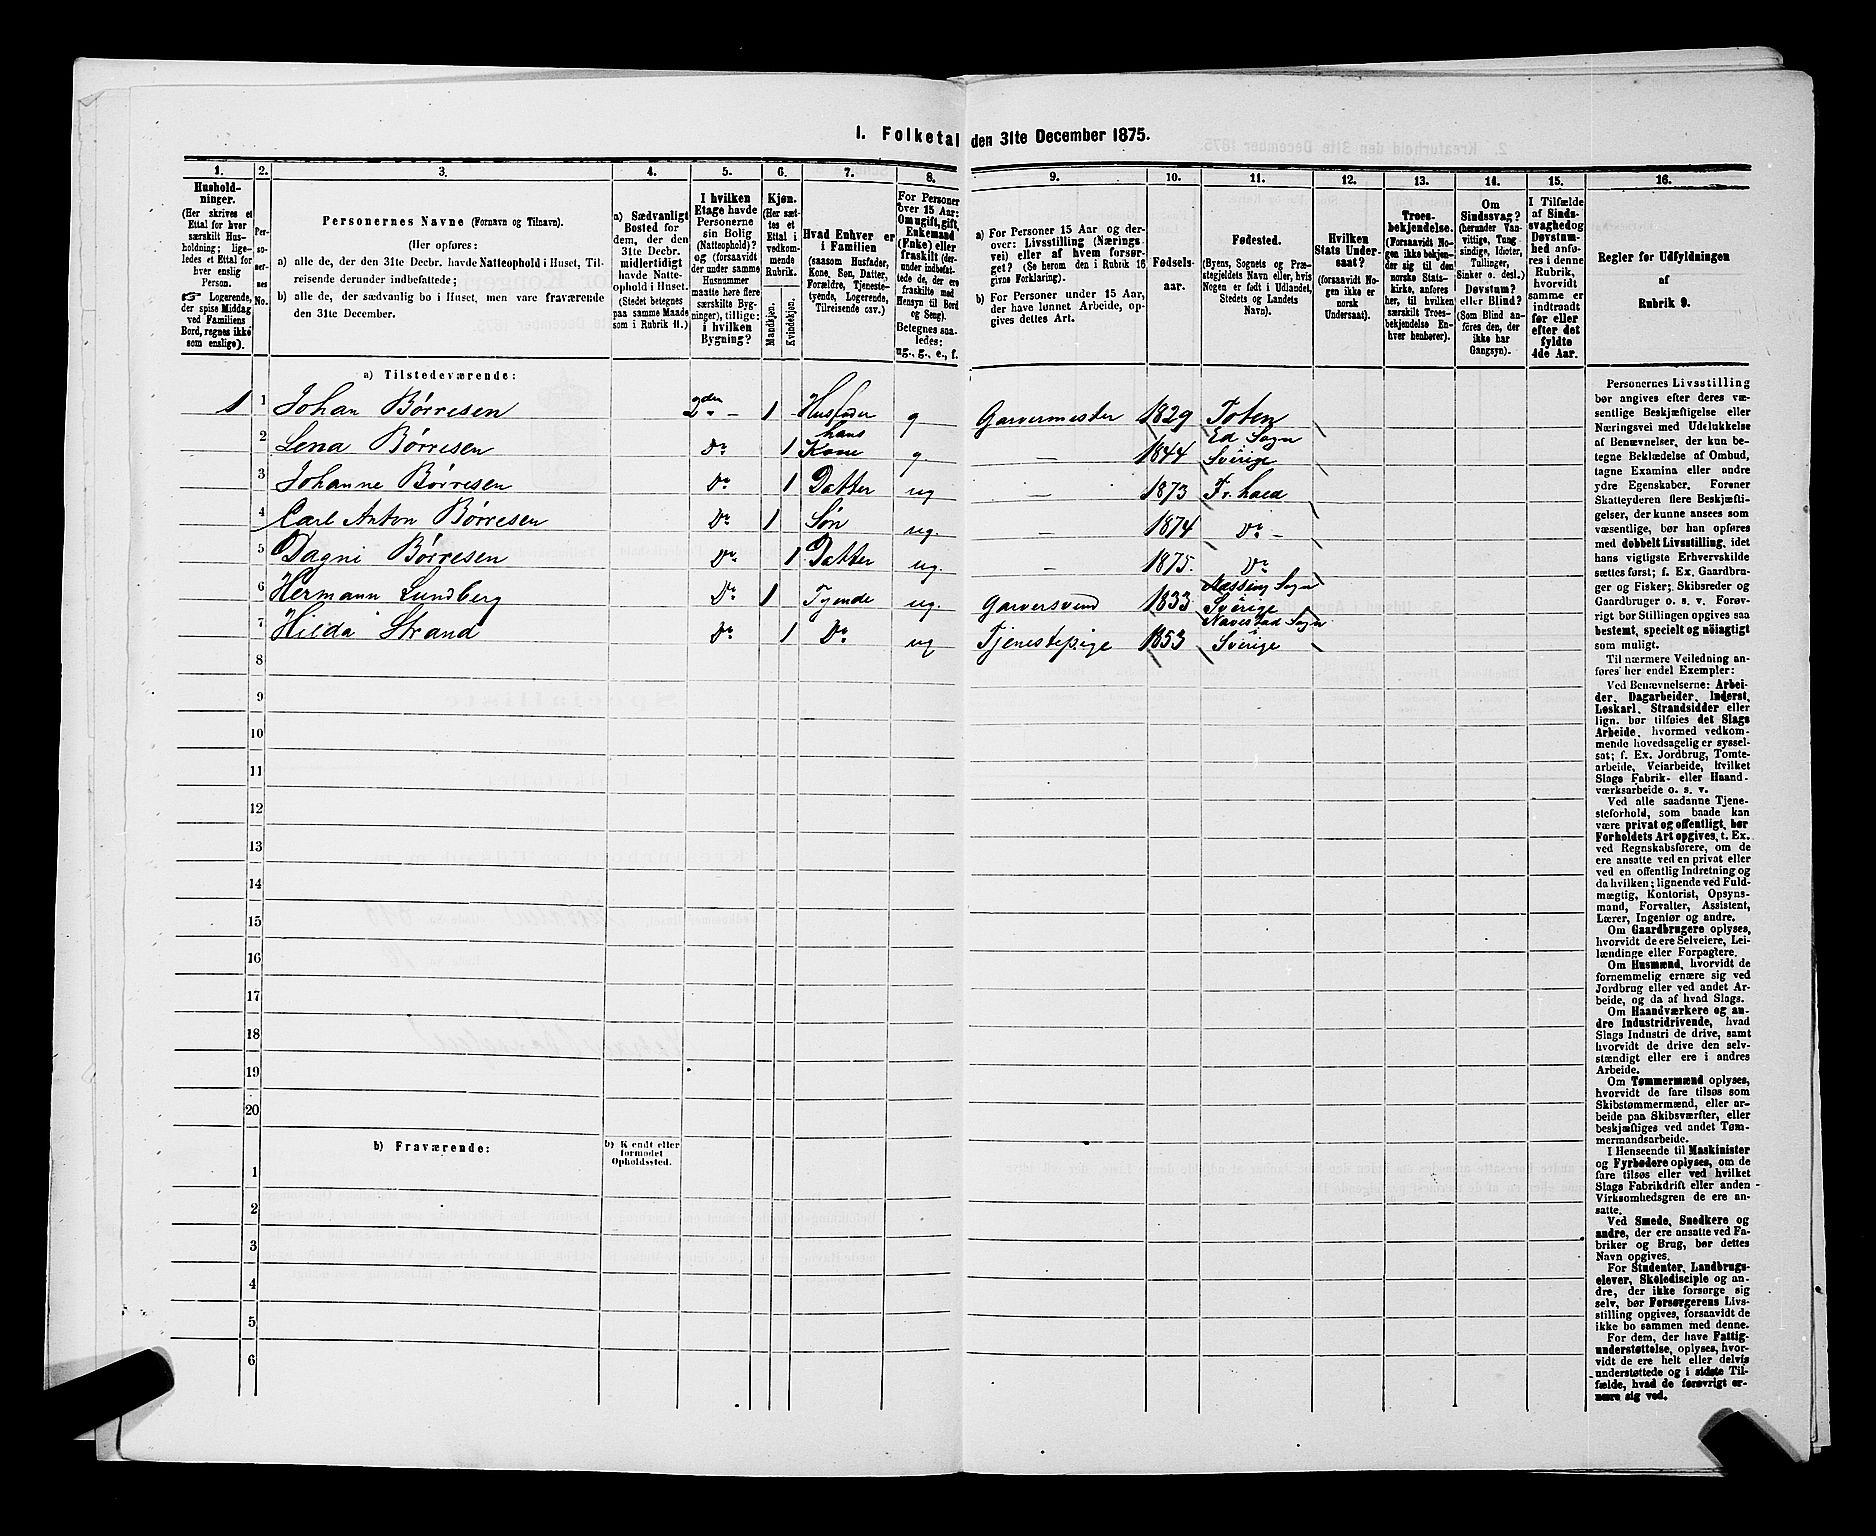 1. Folketal den 31te December 1875.
1. 2. 3. 4. 5. 6. 7. 8. 9. 10. 11. 12. 13. 14. 15. 16.
Hushold-
ninger.
(Her skrives et
Ettal for hver
særskilt Hus-
holdning; lige-
ledes et Ettal for
hver enslig
Person.
☞ Logerende,
der spise Middag
ved Familiens
Bord, regnes ikke
som enslige).
Per-
so-
ner-
nes
No.
Personernes Navne (Fornavn og Tilnavn).
(Her opføres:
a) alle de, der den 31te Decbr. havde Natteophold i Huset, Til-
reisende derunder indbefattede;
b) alle de, der sædvanlig bo i Huset, men vare fraværende
den 31te December.
a) Sædvanligt
Bosted for
dem, der den
31te Decbr.
midlertidigt
havde Natte-
ophold i Huset.
(Stedet betegnes
paa samme Maade
som i Rubrik 11.)
I hvilken
Etage havde
Personerne
sin Bolig
(Natteophold)?
og (forsaavidt
der under samme
Husnummer
maatte høre flere
særskilte Byg-
ninger), tillige:
i hvilken
Bygning?
Kjøn.
(Her sæt-
tes et
Ettal i
vedkom-
mende
Rubrik.
Mandkjøn.
Kvindekjøn.
Hvad Enhver er
i Familien
(saasom Husfader,
Kone, Søn, Datter,
Forældre, Tjeneste-
tyende, Logerende,
Tilreisende osv.)
For Personer
over 15 Aar:
Om ugift, gift,
Enkemand
(Enke) eller
fraskilt (der-
under indbefat-
tede de, der ere
fraskilte med
Hensyn til Bord
og Seng).
Betegnes saa-
ledes:
ug., g., e., f.
a) For Personer 15 Aar og der-
over: Livsstilling (Nærings-
vei) eller af hvem forsør-
get? (Se herom den i Rubrik 16
givne Forklaring).
b) For Personer under 15 Aar,
der have lønnet Arbeide, op-
gives dettes Art.
Fødsels-
aar.
Fødested.
(Byens, Sognets og Præ-
stegjeldets Navn eller, hvis
Nogen er født i Udlandet,
Stedets og Landets
Navn).
Hvilken
Stats Under-
saat?
(forsaavidt No-
gen ikke er
norsk
Undersaat).
Troes-
bekjendelse.
(Forsaavidt No-
gen ikke bekjen-
der sig til den
norske Stats-
kirke, anføres
her, til hvilken
særskilt Troes-
bekjendelse En-
hver henhører).
Om
Sindssvag?
(herunder Van-
vittige, Tung-
sindige, Idioter,
Tullinger,
Sinker o. desl.)
Døvstum?
eller Blind?
(Som Blind an-
føres den, der
ikke har
Gangsyn).
I Tilfælde
af Sinds-
svaghed og
Døvstum-
hed anfø-
res i denne
Rubrik,
hvorvidt
samme er
indtraadt
før eller
efter det
fyldte
4de Aar.
Regler for Udfyldningen
af
Rubrik 9.
a) Tilstedeværende:
1 1 Johan Børresen 2den - 1 Husfader g Garvermester 1829 Toten
2 Lena Børresen Do 1 hans Kone g. — 1844 Ed Sogn Sverige
3 Johanne Børresen Do 1 Datter ug — 1873 Fr.hald
4 Carl Anton Børresen Do 1 Søn ug. — 1874 Do -
5 Dagni Børresen Do 1 Datter ug. — 1875. Do
6 Hermann Lundberg Do 1 Tyende ug. Garversvend 1833 Sogn Sverige
7 Hilda Strand Do 1 Do ug Tjenestepige 1853 Navestad Sogn Sverige
8
9
10
11
12
13
14
15
16
17
18
19
20
b) Fraværende:
b) Kjendt eller
formodet
Opholdssted.
1
2
3
4
5
6
Personernes Livsstilling
bør angives efter deres væ-
sentlige Beskjæftigelse eller
Næringsvei med Udelukkelse
af Benævnelser, der kun be-
tegne Beklædelse af Ombud,
tagne Examina eller andre
ydre Egenskaber. Forener
Skatteyderen flere Beskjæfti-
gelser, der kunne ansees som
væsentlige, bør han opføres
med dobbelt Livsstilling, idet
hans vigtigste Erhvervskilde
sættes først; f. Ex. Gaardbru-
ger og Fisker; Skibsreder og
Gaardbruger o. s. v. Forøv-
rigt bør Stillingen opgives saa
bestemt, specielt og nöiagtigt
som muligt.
Til nærmere Veiledning an-
føres her endel Exempler:
Ved Benævnelserne: Arbei-
der, Dagarbeider, Inderst,
Løskarl, Strandsidder eller
lign. bør tilføies det Slags
Arbeide, hvormed vedkom-
mende hovedsagelig er syssel-
sat; f. Ex. Jordbrug, Tomte-
arbeide, Veiarbeide, hvilket
Slags Fabrik- eller Haand-
værksarbeide o. s. v.
Ved alle saadanne Tjene-
steforhold, som baade kan
være privat og offentligt, bør
Forholdets Art opgives, t. Ex.
ved Regnskabsførere, om de
ere ansatte ved en privat eller
ved en offentlig Indretning og
da hvilken; lignende ved Fuld-
mægtig, Kontorist, Opsyns-
mand, Forvalter, Assistent,
Lærer, Ingeniør og andre.
Om Gaardbrugere oplyses,
hvorvidt de ere Selveiere, Lei-
lændinge eller Forpagtere.
Om Husmænd, hvorvidt de
fornemmelig ernære sig ved
Jordbrug eller ved andet Ar-
beide, og da af hvad Slags.
Om Haandværkere og an-
dre Industridrivende, hvad
Slags Industri de drive, samt
hvorvidt de drive den selv-
stændigt eller ere i andres
Arbeide.
Om Tømmermænd oplyses,
hvorvidt de fare tilsøs som
Skibstømmermænd, eller ar-
beide paa Skibsværfter, eller
beskjæftiges ved andet Tøm-
mermandsarbeide.
I Henseende til Maskinister
og Fyrbødere oplyses, om de
fare tilsøs eller ved hvilket
Slags Fabrikdrift eller anden
Virksomhedsgren de ere an-
satte.
Ved Smede, Snedkere og
andre, der ere ansatte ved Fa-
briker og Brug, bør dettes
Navn opgives.
For Studenter, Landbrugs-
elever, Skoledisciple og an-
dre, der ikke forsørge sig
selv, bør Forsørgerens Livs-
stilling opgives, forsaavidt de
ikke bo sammen med denne.
For dem, der have Fattig-
understøttelse, oplyses, hvor-
vidt de ere helt eller delvis
understøttede og i sidste Til-
fælde, hvad de forøvrigt er-
nære sig ved.